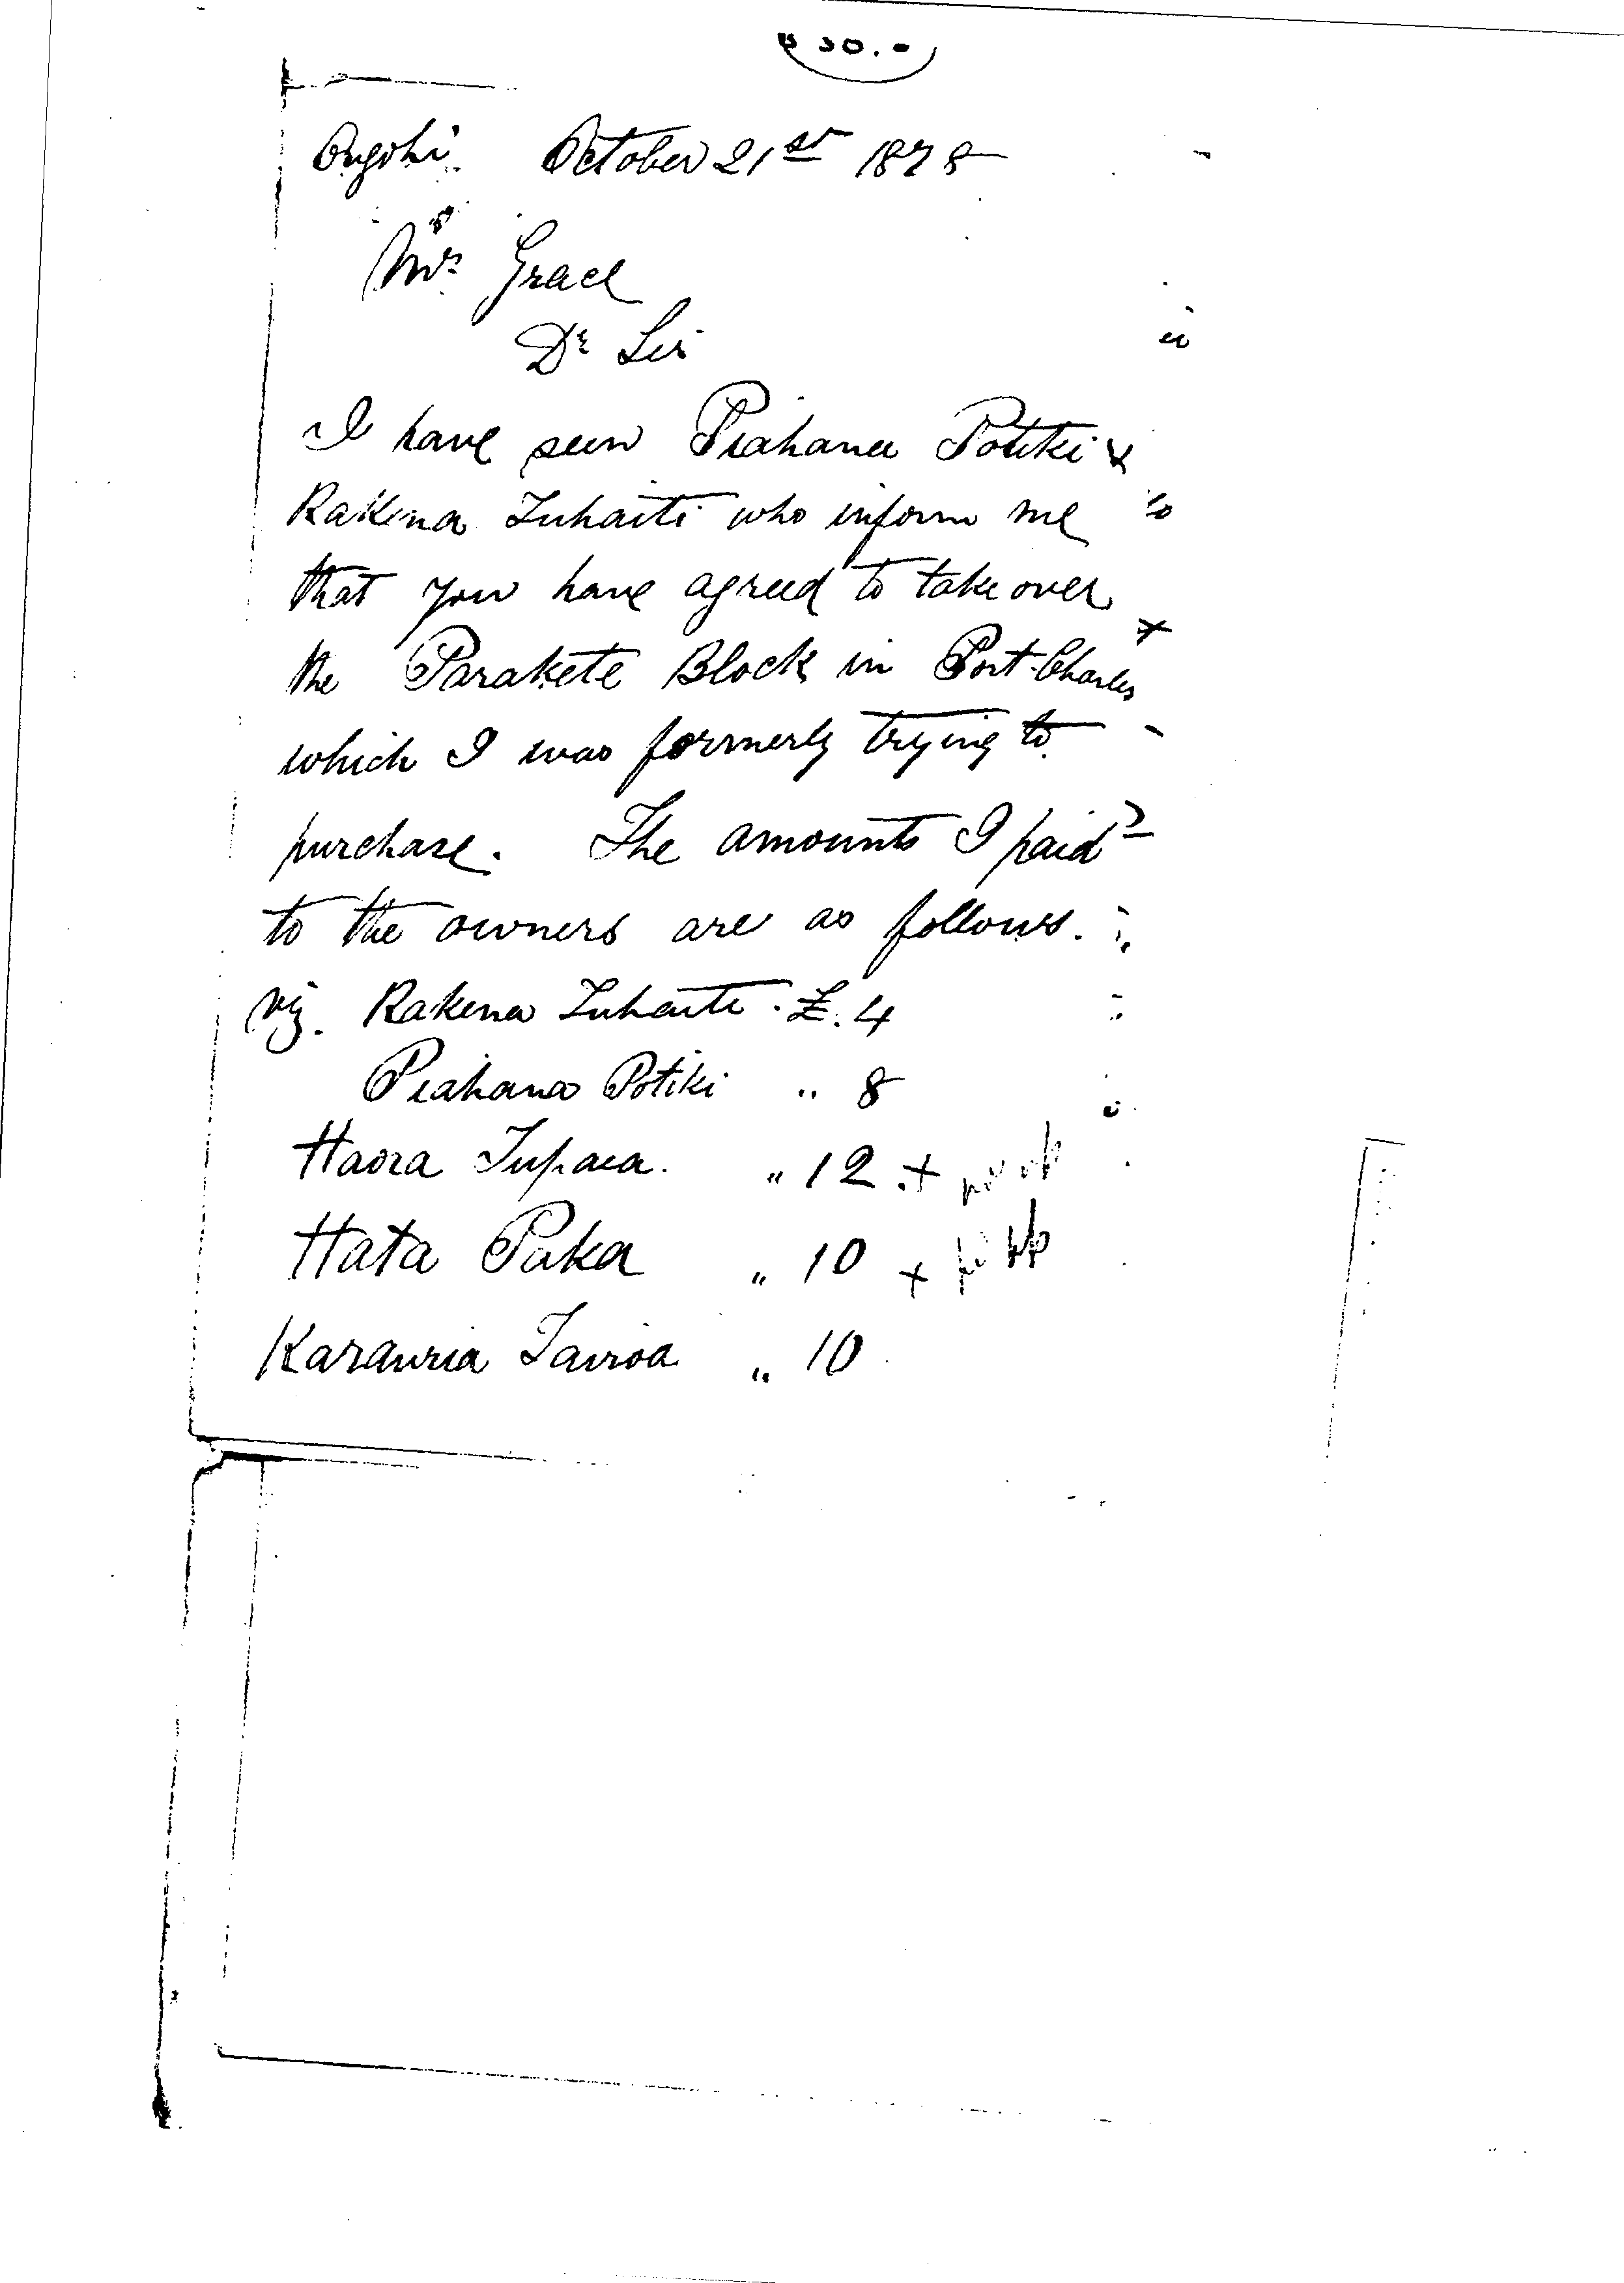 30.
October 21st 1878
Mr Grace
Dr Sir
I have seen Piahana Potiki &
Rakena Tuhaiti who inform me
that you have agreed to take over
the Parakete Block in Port Charles
which I was formerly trying to
purchase. The amounts I paid
to the owners are as follows.
viz. Rakena Tuhaiti. £.4
Piahana Potiki " 8
Haora Tupaea. " 12 +
Hata Paka " 10 +
Karauria Tairoa " 10